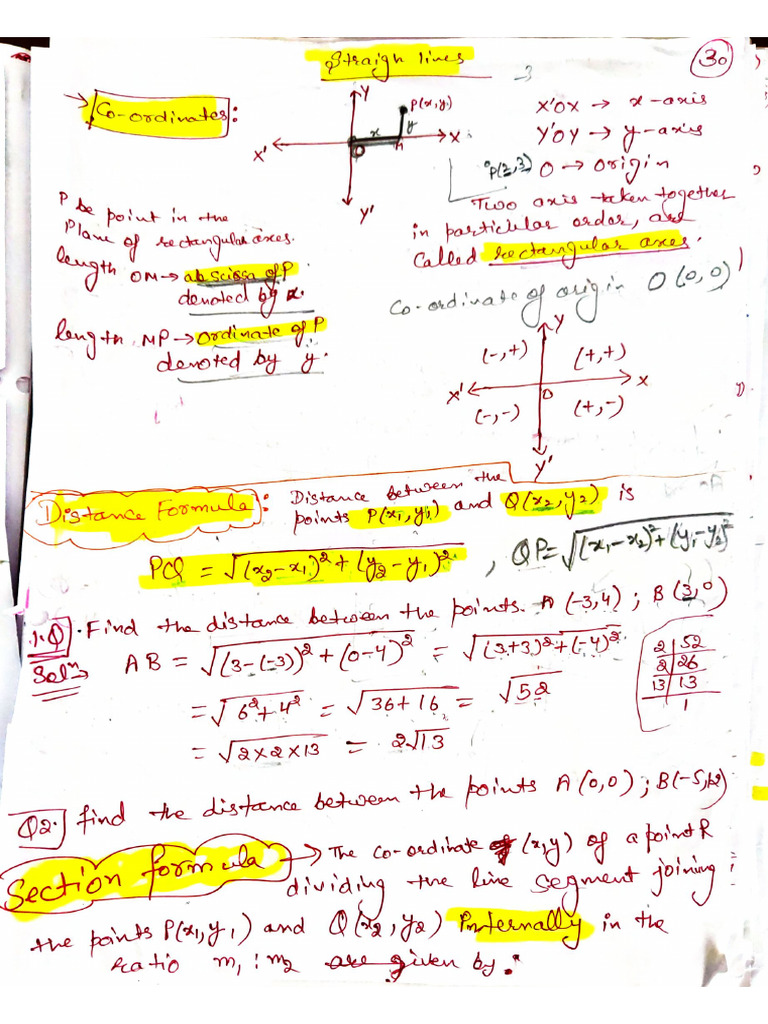 Straigh lines
30
Co-ordinates:
Y
P(x, y)
x
y
X' O M X
Y'
X'OX → x-axis
Y'OY → y-axis
O → Origin
P(2,3)
Two axis taken together
in particular order, are
Called rectangular axes.
P be point in the
Plane of rectangular axes.
length OM → abscissa of P
denoted by x.
length MP → Ordinate of P
denoted by y.
Co-ordinate of origin O (0,0)
Y
(-,+) (+,+)
X' O X
(-,-) (+,-)
Y'
Distance Formula: Distance between the
points P(x₁,y₁) and Q(x₂,y₂) is
PQ = √(x₂-x₁)²+(y₂-y₁)² , QP=√(x₁-x₂)²+(y₁-y₂)²
1.Q. Find the distance between the points. A (-3,4) ; B (3,0)
Solⁿ AB = √(3-(-3))²+(0-4)² = √(3+3)²+(-4)²
= √6²+4² = √36+16 = √52
= √2×2×13 = 2√13
2 | 52
2 | 26
13 | 13
1
Q2. find the distance between the points A(0,0) ; B(-5,12)
Section formula → The co-ordinate of (x,y) of a point R
dividing the line segment joining
the points P(x₁,y₁) and Q(x₂,y₂) Internally in the
ratio m₁:m₂ are given by: